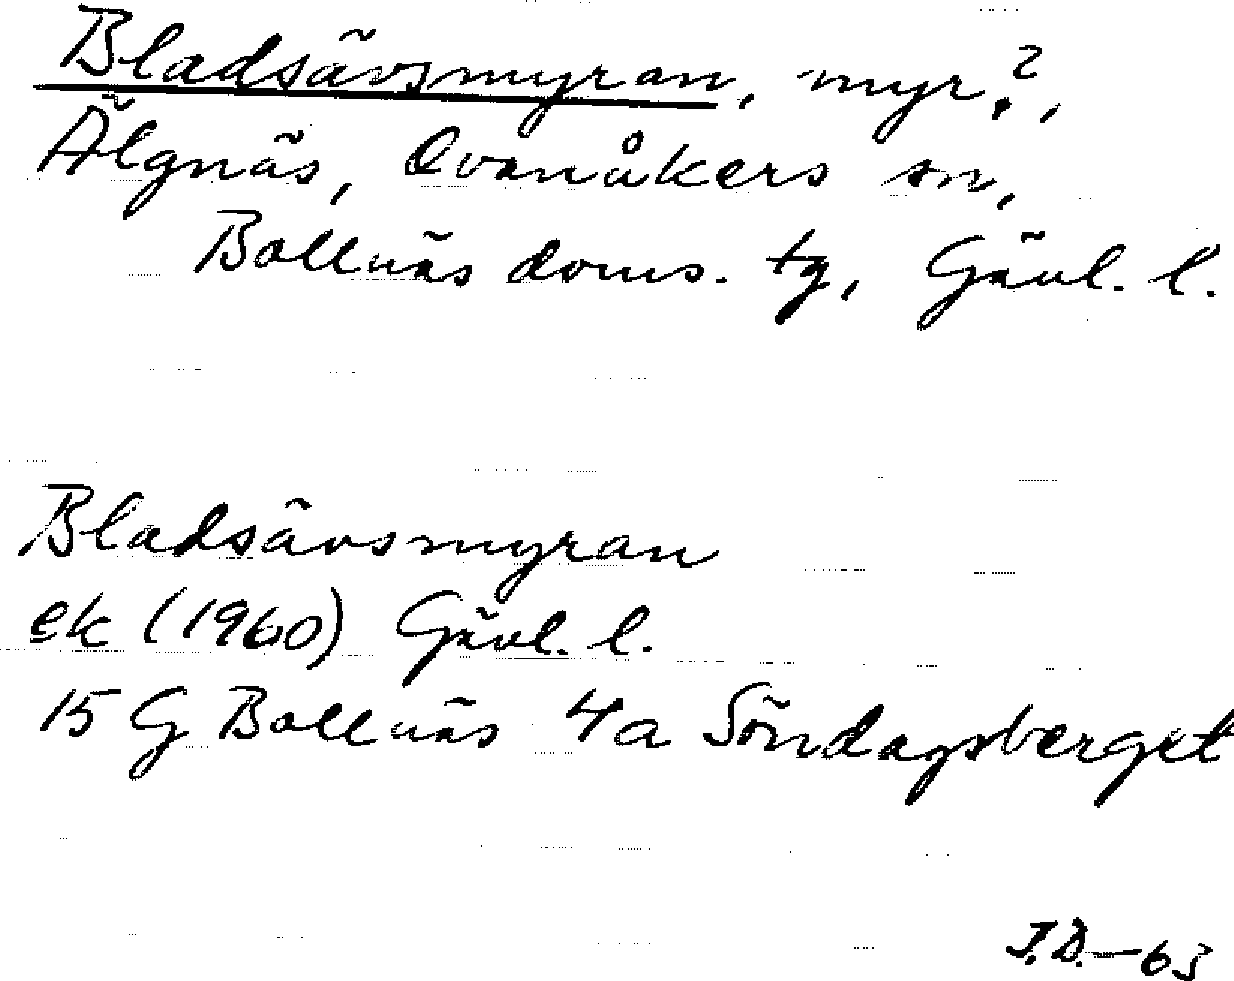 Bladsävsmyran, myr?,
Älgnäs, Ovanåkers sn,
Bollnäs doms. tg, Gävl. l.
Bladsävsmyran
ek (1960) Gävl. l.
15 G Bollnäs 4a Söndagsberget
J.D.–63